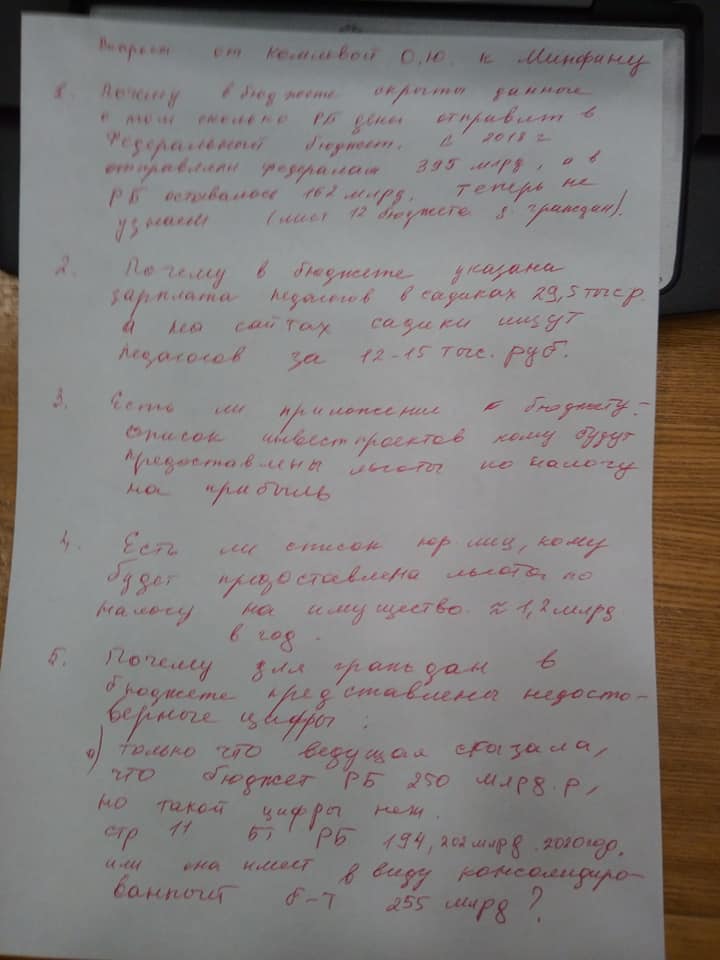 Вопросы от Комлевой О.Ю. к Минфину
1. Почему в бюджете скрыты данные
о том сколько РБ день отправляет в
Федеральный бюджет. С 2018 г
отправляли федералам 395 млрд, а в
РБ оставалось 162 млрд. Теперь не
узнаем (лист 12 бюджета д. граждан).
2. Почему в бюджете указана
зарплата педагогов в садиках 29,5 тыс р.
а на сайтах садики ищут
педагогов за 12-15 тыс. руб.
3. Есть ли приложение к бюджету -
список инвестпроектов кому будут
предоставлены льготы по налогу
на прибыль
4. Есть ли список юр. лиц, кому
будет предоставлена льгота по
налогу на имущество ≈ 1,2 млрд
в год.
5. Почему для граждан в
бюджете представлены недосто-
верные цифры:
а) только что ведущая сказала,
что бюджет РБ 250 млрд. р,
но такой цифры нет.
стр 11 Б-т РБ 194,202 млрд. 2020 год.
или она имеет в виду консолидиро-
ванный б-т 255 млрд?